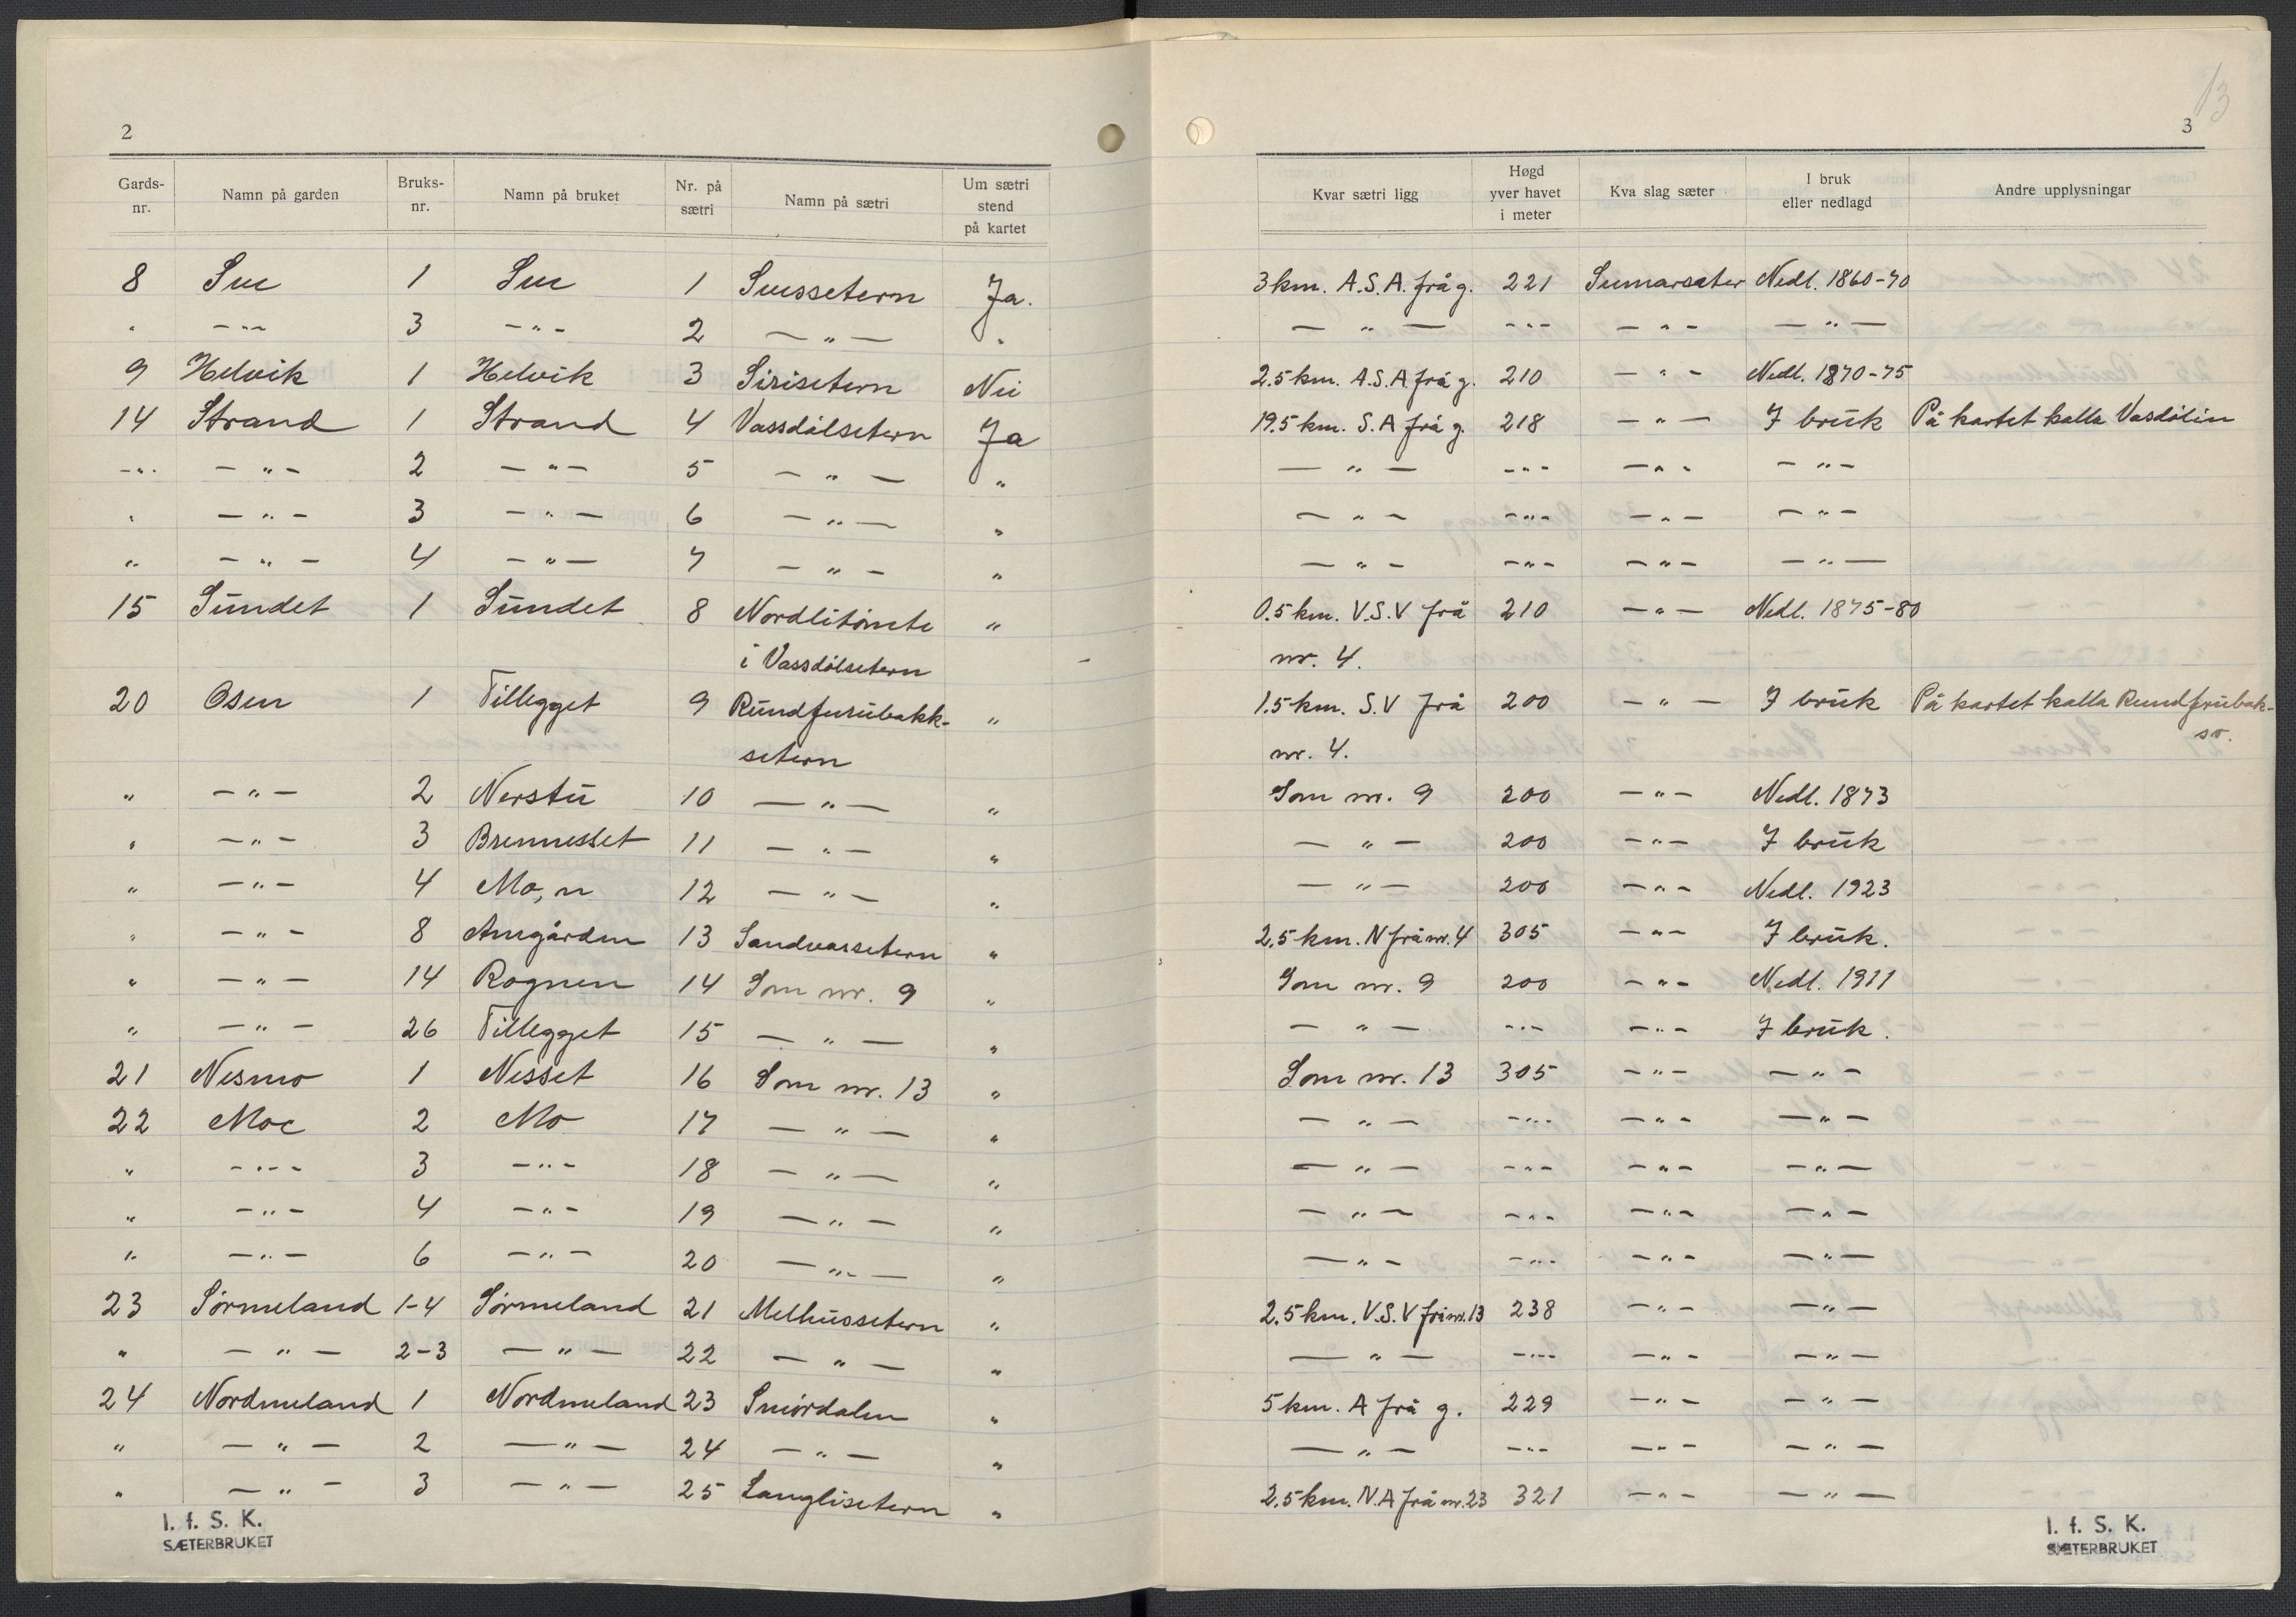 2
Gards-nr. Namn på garden Bruks-nr. Namn på bruket Nr. på sætri Namn på sætri Um sætri stend på kartet
8 Sue 1 Sue 1 Suessetern Ja.
" - " - 3 - " - 2 - " - "
9 Helvik 1 Helvik 3 Sirisetern Nei
14 Strand 1 Strand 4 Vassdålsetern Ja
- " - - " - 2 - " - 5 - " - "
" - " - 3 - " - 6 - " - "
" - " - 4 - " - 7 - " - "
15 Sundet 1 Sundet 8 Nordlitømte "
i Vassdålsetern
20 Osen 1 Tillegget 9 Rundfurubakk- "
setern
" - " - 2 Nerstu 10 - " - "
" - " - 3 Brennesset 11 - " - "
" - " - 4 Mo, n 12 - " - "
" - " - 8 Amgården 13 Sandvassetern "
" - " - 14 Rognen 14 Som nr. 9 "
" - " - 26 Tillegget 15 - " - "
21 Nesmo 1 Nesset 16 Som nr. 13 "
22 Moe 2 Mo 17 - " - "
" - " - 3 - " - 18 - " - "
" - " - 4 - " - 19 - " - "
" - " - 6 - " - 20 - " - "
23 Sørmeland 1-4 Sørmeland 21 Melhussetern "
" - " - 2-3 - " - 22 - " - "
24 Nordmeland 1 Nordmeland 23 Smørdalen "
" - " - 2 - " - 24 - " - "
" - " - 3 - " - 25 Langlisetern "
I. f. S. K.
SÆTERBRUKET
13
3
Kvar sætri ligg Høgd yver havet i meter Kva slag sæter I bruk eller nedlagd Andre upplysningar
3 km. A.S.A. frå g. 221 Sumarsæter Nedl. 1860-70
- " - - " - - " - - " -
2.5 km. A.S.A. frå g. 210 - " - Nedl. 1870-75
19.5 km. S.A frå g. 218 - " - I bruk På kartet kalla Vasdålin
- " - - " - - " - - " -
- " - - " - - " - - " -
- " - - " - - " - - " -
0.5 km. V.S.V frå 210 - " - Nedl. 1875-80
nr. 4.
1.5 km. S.V frå 200 - " - I bruk På kartet kalla Rundfrubak-
nr. 4. sr.
Som nr. 9 200 - " - Nedl. 1873
- " - 200 - " - I bruk
- " - 200 - " - Nedl. 1923
2.5 km. N frå nr. 4 305 - " - I bruk.
Som nr. 9 200 - " - Nedl. 1911
- " - - " - - " - I bruk.
Som nr. 13 305 - " - - " -
- " - - " - - " - - " -
- " - - " - - " - - " -
- " - - " - - " - - " -
- " - - " - - " - - " -
2.5 km. V.S.V frå nr. 13 238 - " - - " -
- " - - " - - " - - " -
5 km. A frå g. 229 - " - - " -
- " - - " - - " - - " -
2.5 km. N.A frå nr. 23 321 - " - - " -
I. f. S. K.
SÆTERBRUKET